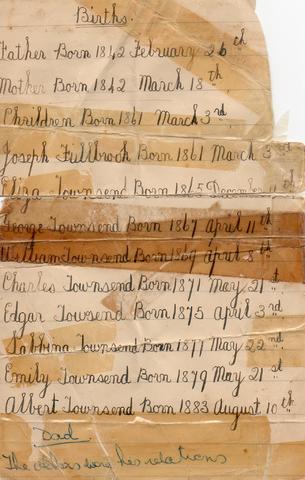 Births.
Father Born 1842 February 26th
Mother Born 1842 March 18th
Chrildren Born 1861 March 3rd
Joseph Fullbrook Born 1861 March 3rd
Eliza Townsend Born 1865 December 11th
George Townsend Born 1867 April 11th
William Townsend Born 1869 April 8th
Charles Townsend Born 1871 May 21st
Edgar Towsend Born 1875 April 3rd
Sabrina Townsend Born 1877 May 22nd
Emily Townsend Born 1879 May 21st
Albert Townsend Born 1883 August 10th
Dad
The others being his relations